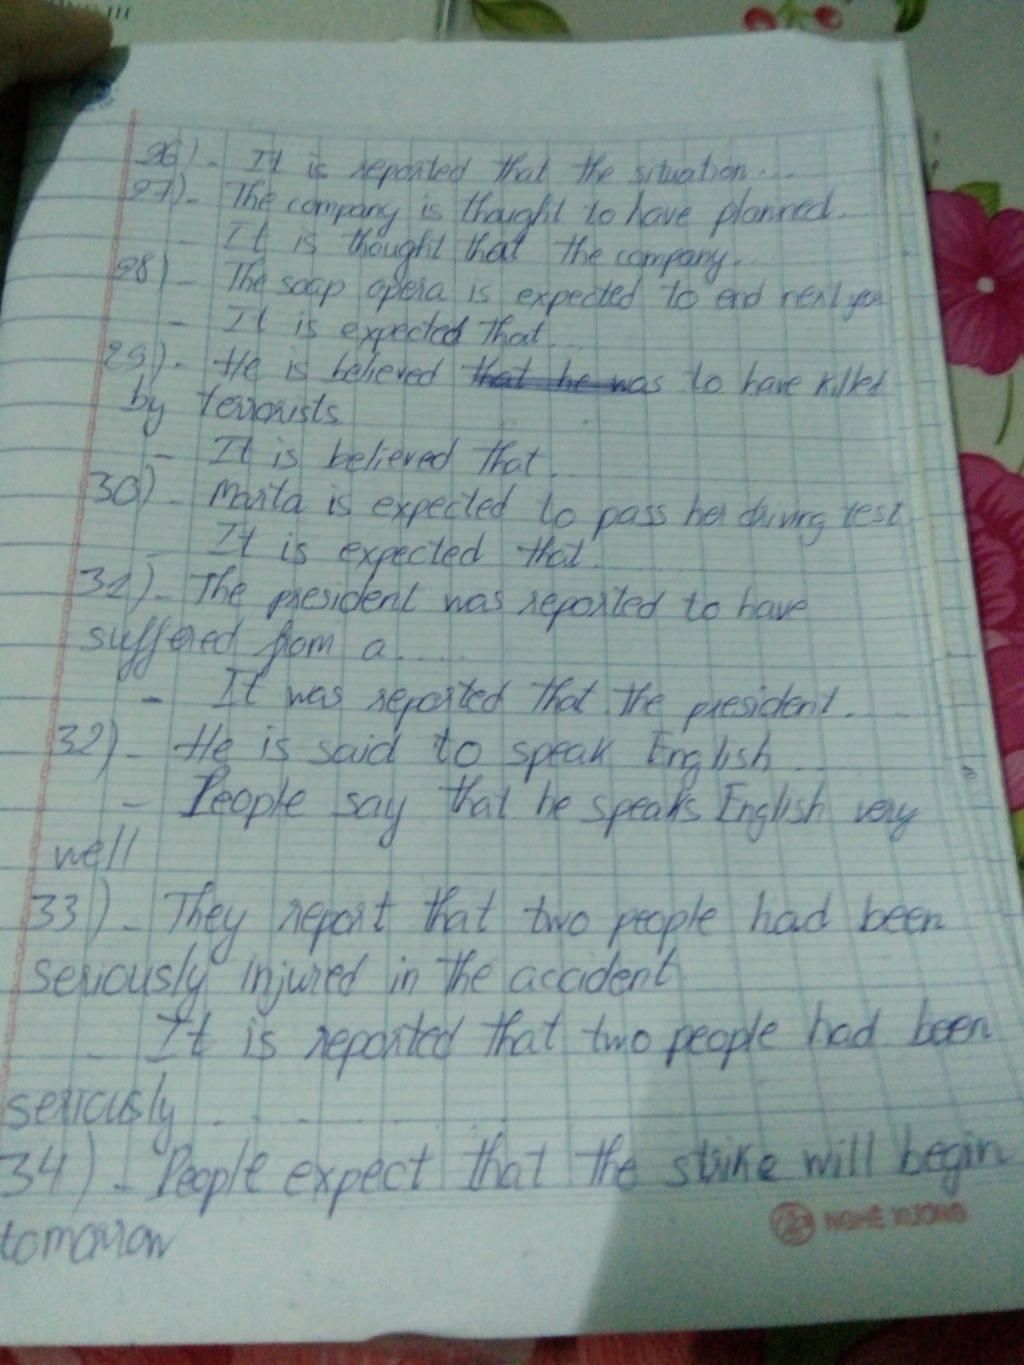 26) - It is reported that the situation...
27) - The company is thought to have planned..
- It is thought that the company..
28) - The soap opera is expected to end next year
- It is expected that...
29) - He is believed to have killed
by terrorists
- It is believed that..
30) - Marta is expected to pass her driving test
It is expected that..
31) - The president was reported to have
suffered from a.....
- It was reported that the president.....
32) - He is said to speak English...
- People say that he speaks English very
well
33) - They report that two people had been
seriously injured in the accident
- It is reported that two people had been
seriously.....
34) - People expect that the strike will begin
tomorrow
NGHÊ XUONG